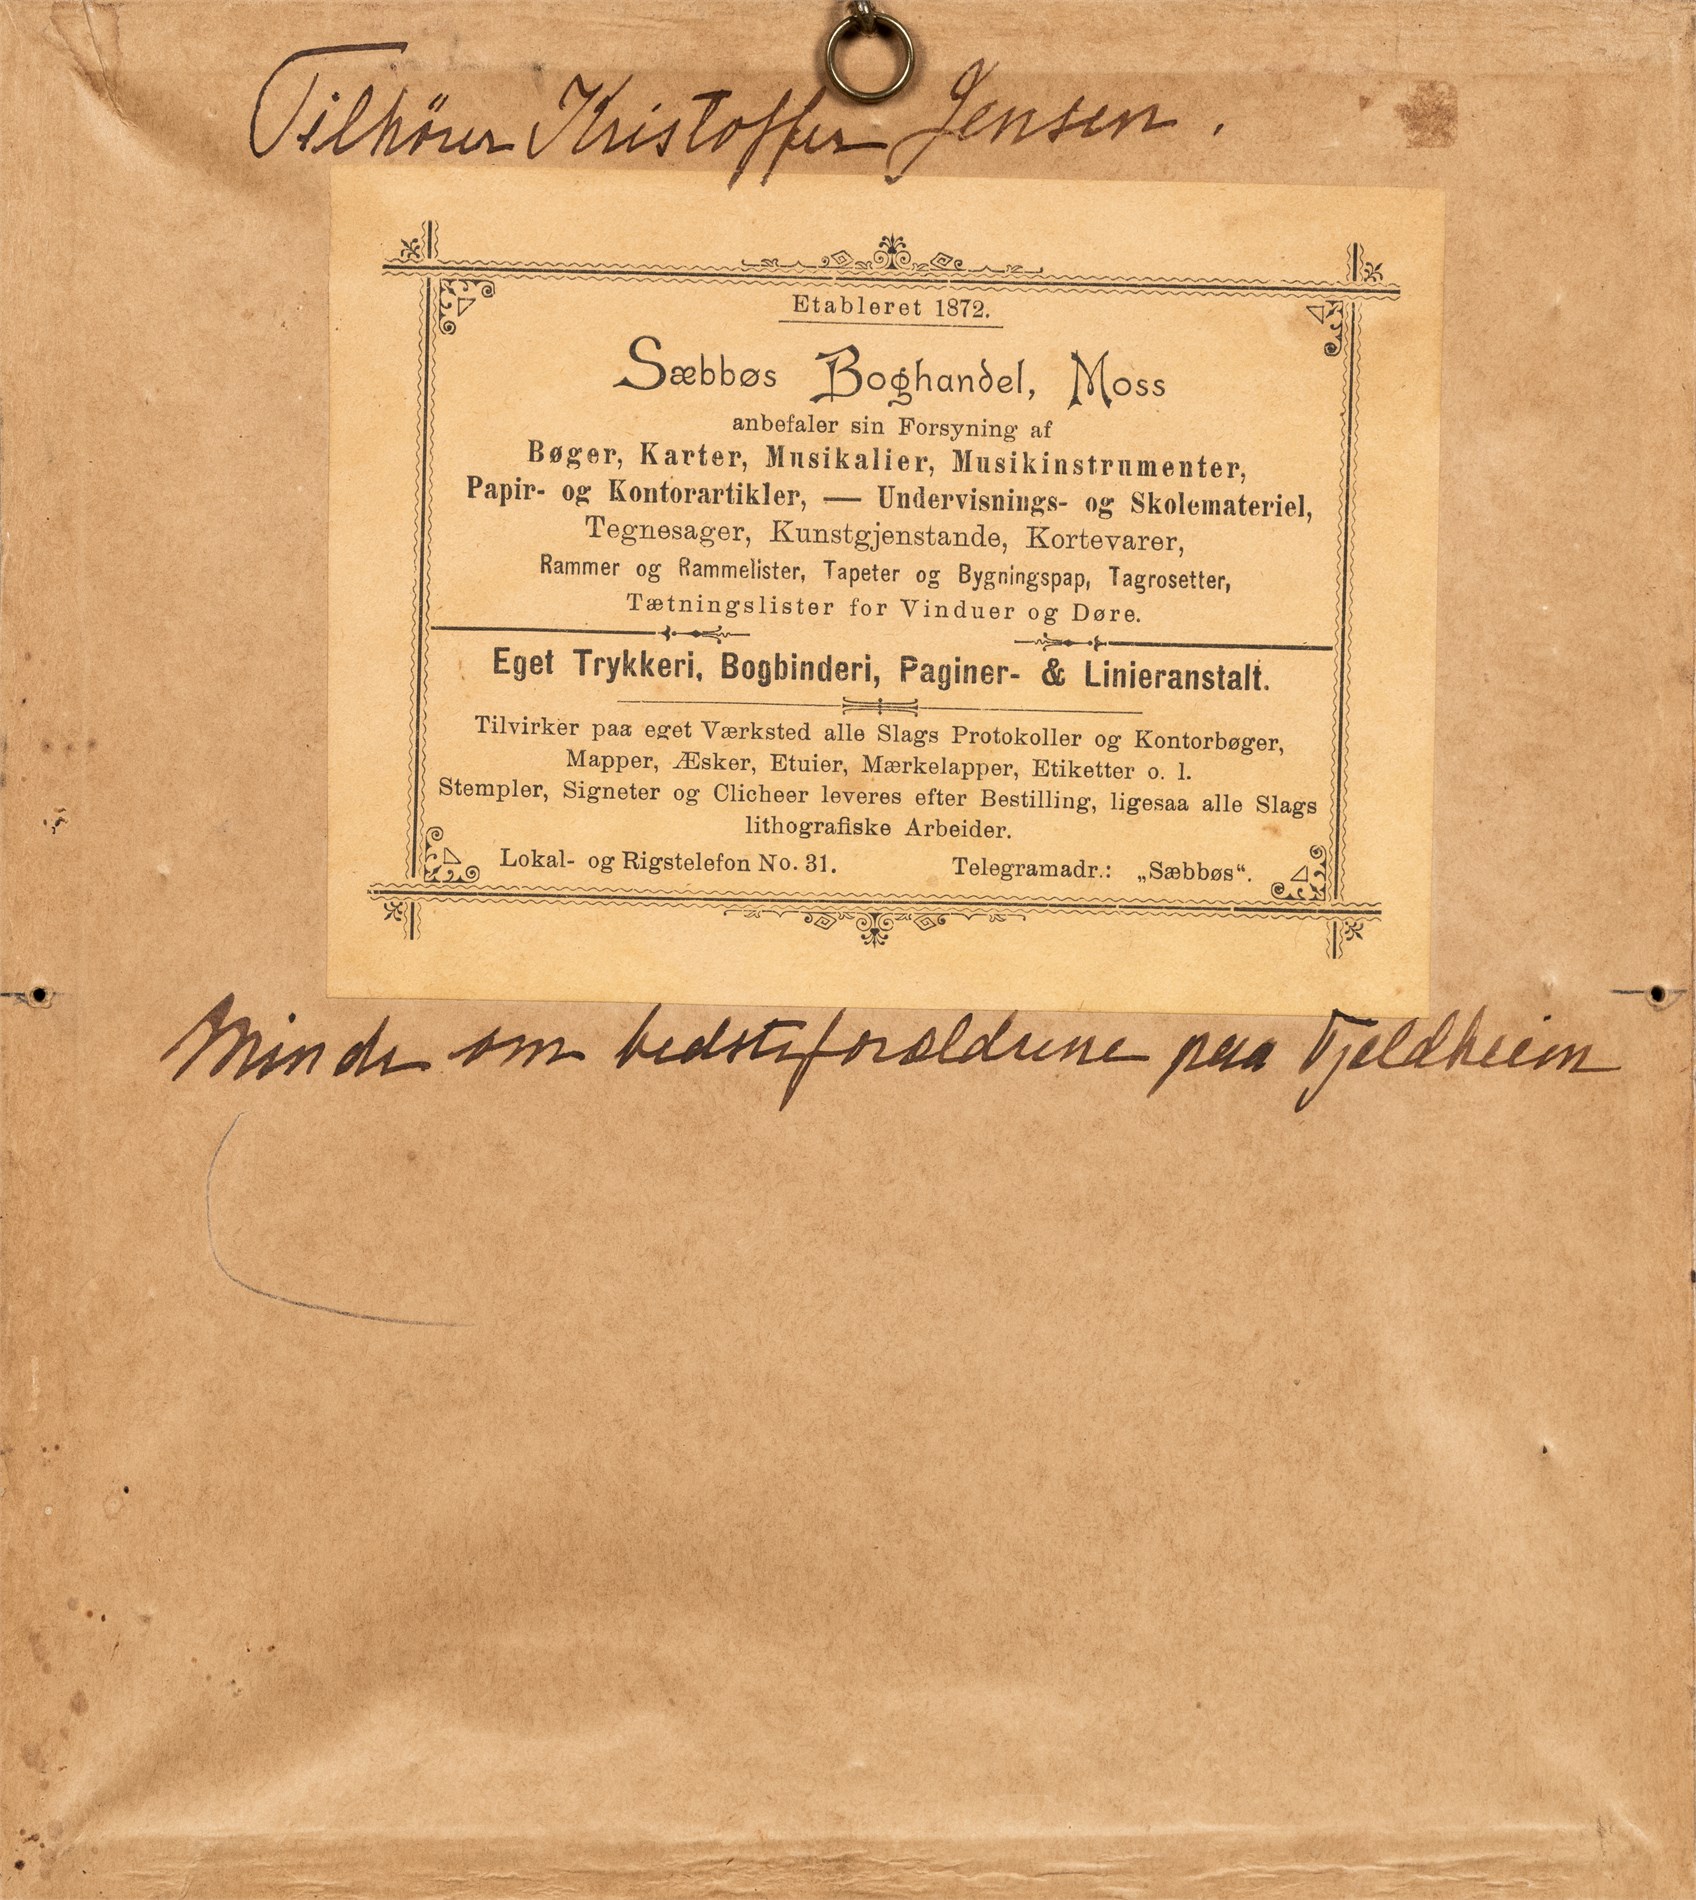 Tilhörer Kristoffer Jensen.
Etableret 1872.
Sæbbøs Boghandel, Moss
anbefaler sin Forsyning af
Bøger, Karter, Musikalier, Musikinstrumenter,
Papir- og Kontorartikler, — Undervisnings- og Skolemateriel,
Tegnesager, Kunstgjenstande, Kortevarer,
Rammer og Rammelister, Tapeter og Bygningspap, Tagrosetter,
Tætningslister for Vinduer og Døre.
Eget Trykkeri, Bogbinderi, Paginer- & Linieranstalt.
Tilvirker paa eget Værksted alle Slags Protokoller og Kontorbøger,
Mapper, Æsker, Etuier, Mærkelapper, Etiketter o. l.
Stempler, Signeter og Clicheer leveres efter Bestilling, ligesaa alle Slags
lithografiske Arbeider.
Lokal- og Rigstelefon No. 31. Telegramadr.: „Sæbbøs“.
Minde om bedsteforældrene paa Fjeldheim